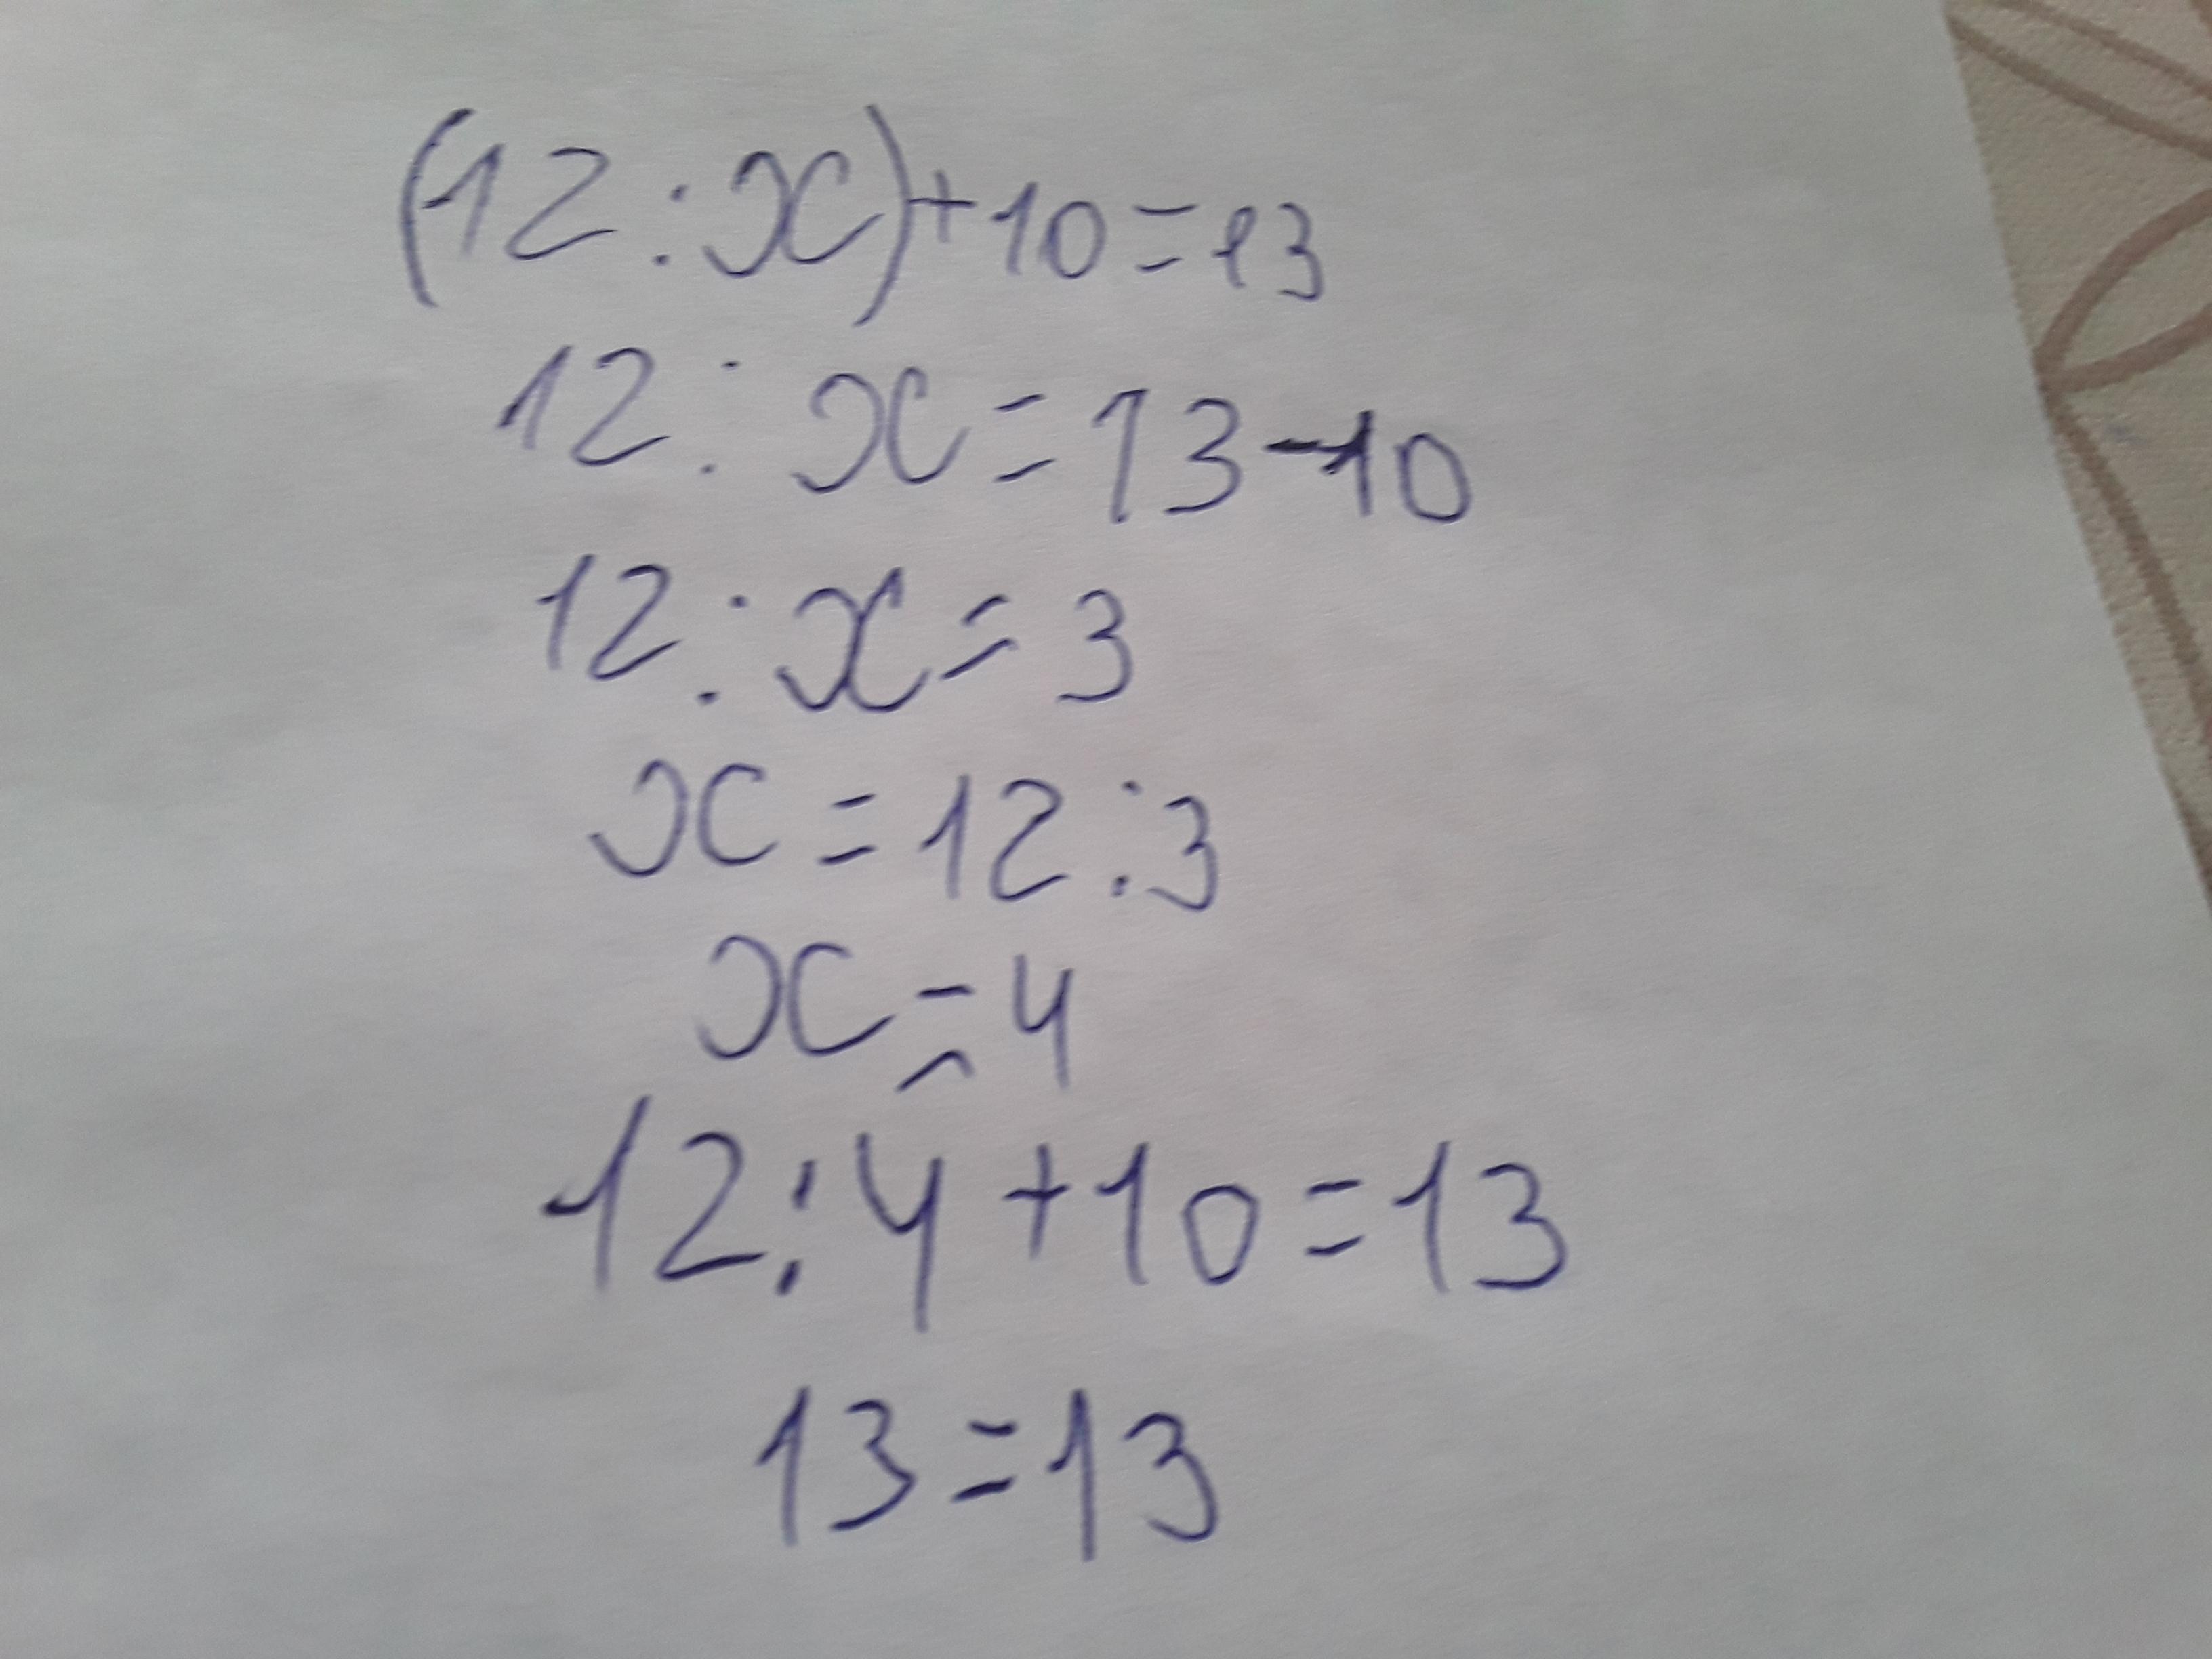 (12:x)+10=13
12:x=13-10
12:x=3
x=12:3
x=4
12:4+10=13
13=13